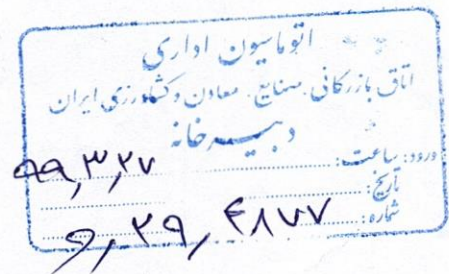 اتوماسیون اداری
اتاق بازرگانی، صنایع، معادن و کشاورزی ایران
دبیرخانه
ورود: ساعت:
تاریخ: ۹۹,۳,۲۷
شماره: و, ۲۹, ۴۸۷۷